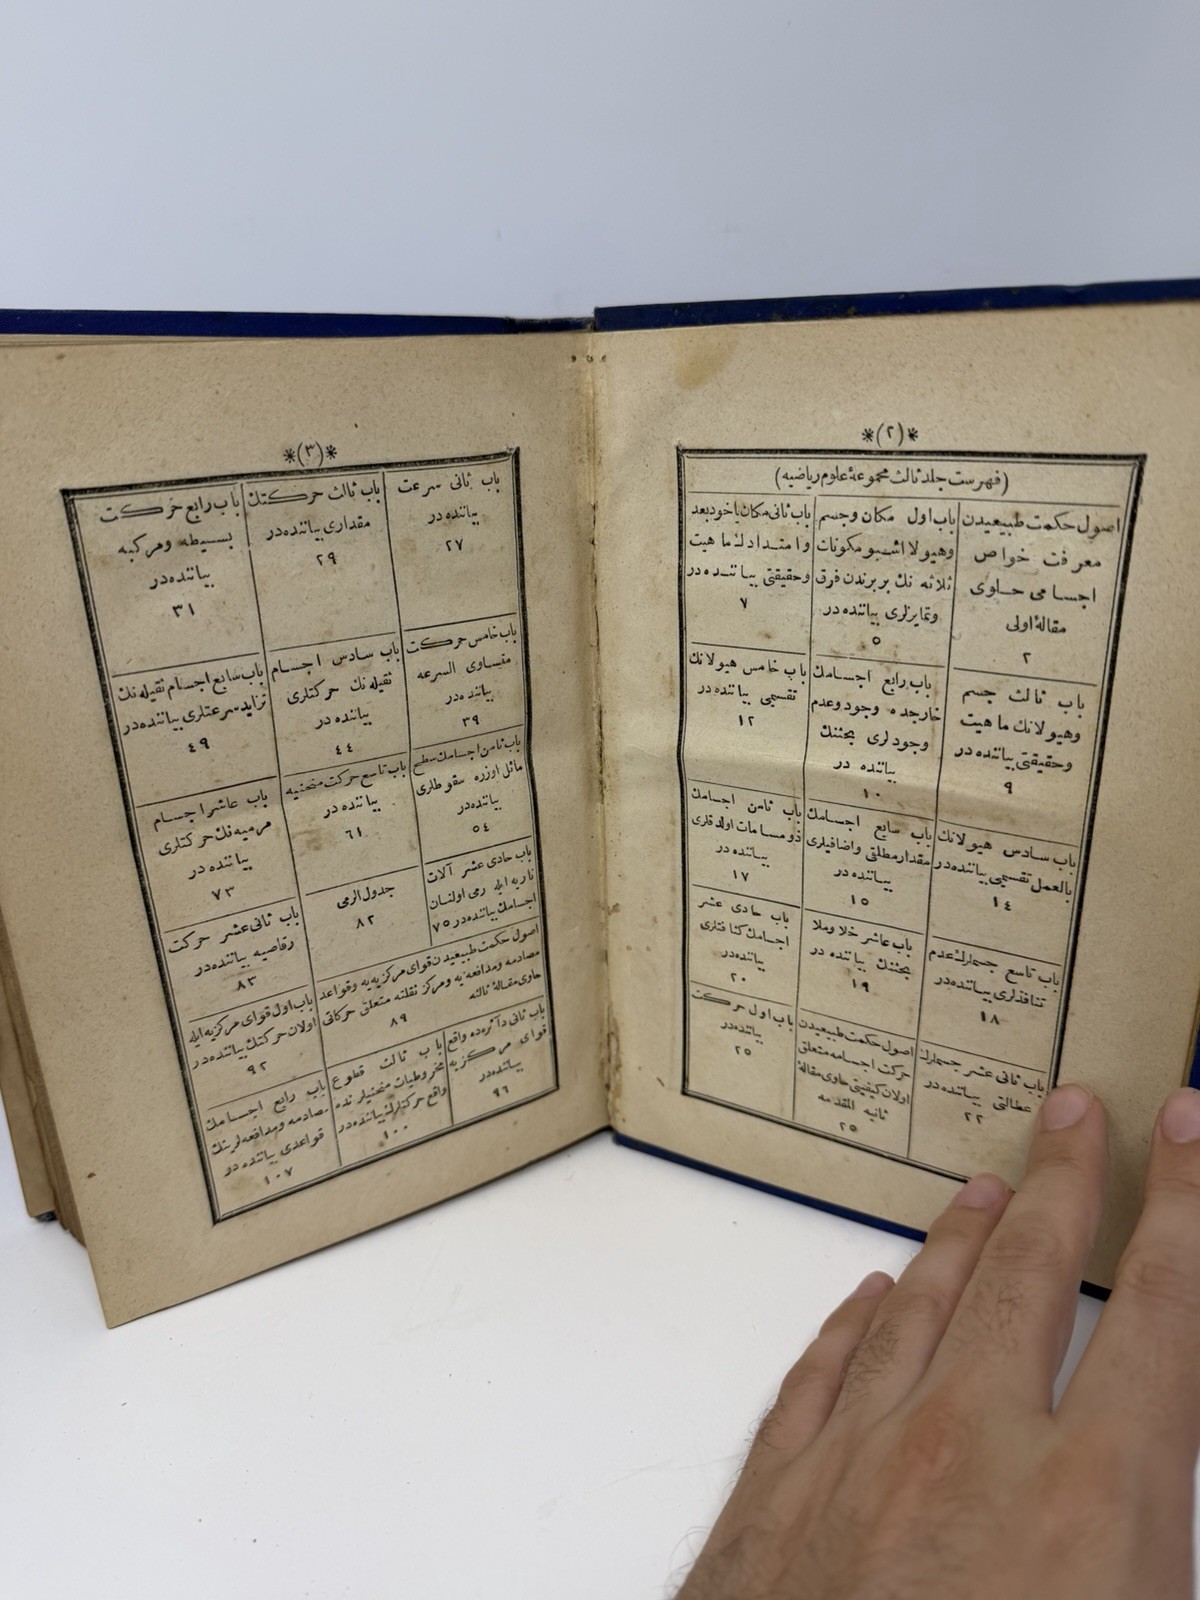 *(٢)*
(فهرست جلد ثالث مجموعهٔ علوم ریاضیه)
اصول حکمت طبیعیدن
معرفت خواص
اجسامی حاوی
مقالهٔ اولی
٢
باب اول مکان وجسم
وهیولا اشبو مکونات
ثلاثه نك بربرندن فرق
وتمایزلری بیاننده در
٥
باب ثانی مکان یاخود بعد
وامتدادك ماهیت
وحقیقتی بیاننده در
٧
باب ثالث جسم
وهیولانك ماهیت
وحقیقتی بیاننده در
٩
باب رابع اجسامك
خارجده وجود وعدم
وجودلری بحثنك
بیاننده در
١٠
باب خامس هیولانك
تقسیمی بیاننده در
١٢
باب سادس هیولانك
بالعمل تقسیمی بیاننده در
١٤
باب سابع اجسامك
مقدار مطلق واضافیلری
بیاننده در
١٥
باب ثامن اجسامك
ذو مسامات اولدقلری
بیاننده در
١٧
باب تاسع جسملرك عدم
تنافذلری بیاننده در
١٨
باب عاشر خلا وملا
بحثنك بیاننده در
١٩
باب حادی عشر
اجسامك کثافتلری
بیاننده در
٢٠
باب ثانی عشر جسملرك
عطالتی بیاننده در
٢٢
اصول حکمت طبیعیدن
حرکت اجسامه متعلق
اولان کیفیتی حاوی مقالهٔ
ثانیه المقدمه
٢٥
باب اول حرکت
بیاننده در
٢٥
*(٣)*
باب ثانی سرعت
بیاننده در
٢٧
باب ثالث حرکتك
مقداری بیاننده در
٢٩
باب رابع حرکت
بسیطه ومرکبه
بیاننده در
٣١
باب خامس حرکت
متساوی السرعه
بیاننده در
٣٩
باب سادس اجسام
ثقیله نك حرکتلری
بیاننده در
٤٤
باب سابع اجسام ثقیله نك
تزاید سرعتلری بیاننده در
٤٩
باب ثامن اجسامك سطح
مائل اوزره سقوطلری
بیاننده در
٥٤
باب تاسع حرکت منحنیه
بیاننده در
٦١
باب عاشر اجسام
مرمیه نك حرکتلری
بیاننده در
٧٣
باب حادی عشر آلات
ناریه ایله رمی اولنان
اجسامك بیاننده در ٧٥
جدول الرمی
٨٢
باب ثانی عشر حرکت
رقاصیه بیاننده در
٨٣
اصول حکمت طبیعیدن قوای مرکزیه یه وقواعد
مصادمه ومدافعه یه ومرکز ثقلته متعلق حرکاتی
حاوی مقالهٔ ثالثه
٨٩
باب اول قوای مرکزیه ایله
اولان حرکتك بیاننده در
٩٢
باب ثانی دآئره ده واقع
قوای مرکزیه
بیاننده در
٩٦
باب ثالث قطوع
مخروطیات منحنیلرنده
واقع حرکتلرك بیاننده در
١٠٠
باب رابع اجسامك
مصادمه ومدافعه لرینك
قواعدی بیاننده در
١٠٧